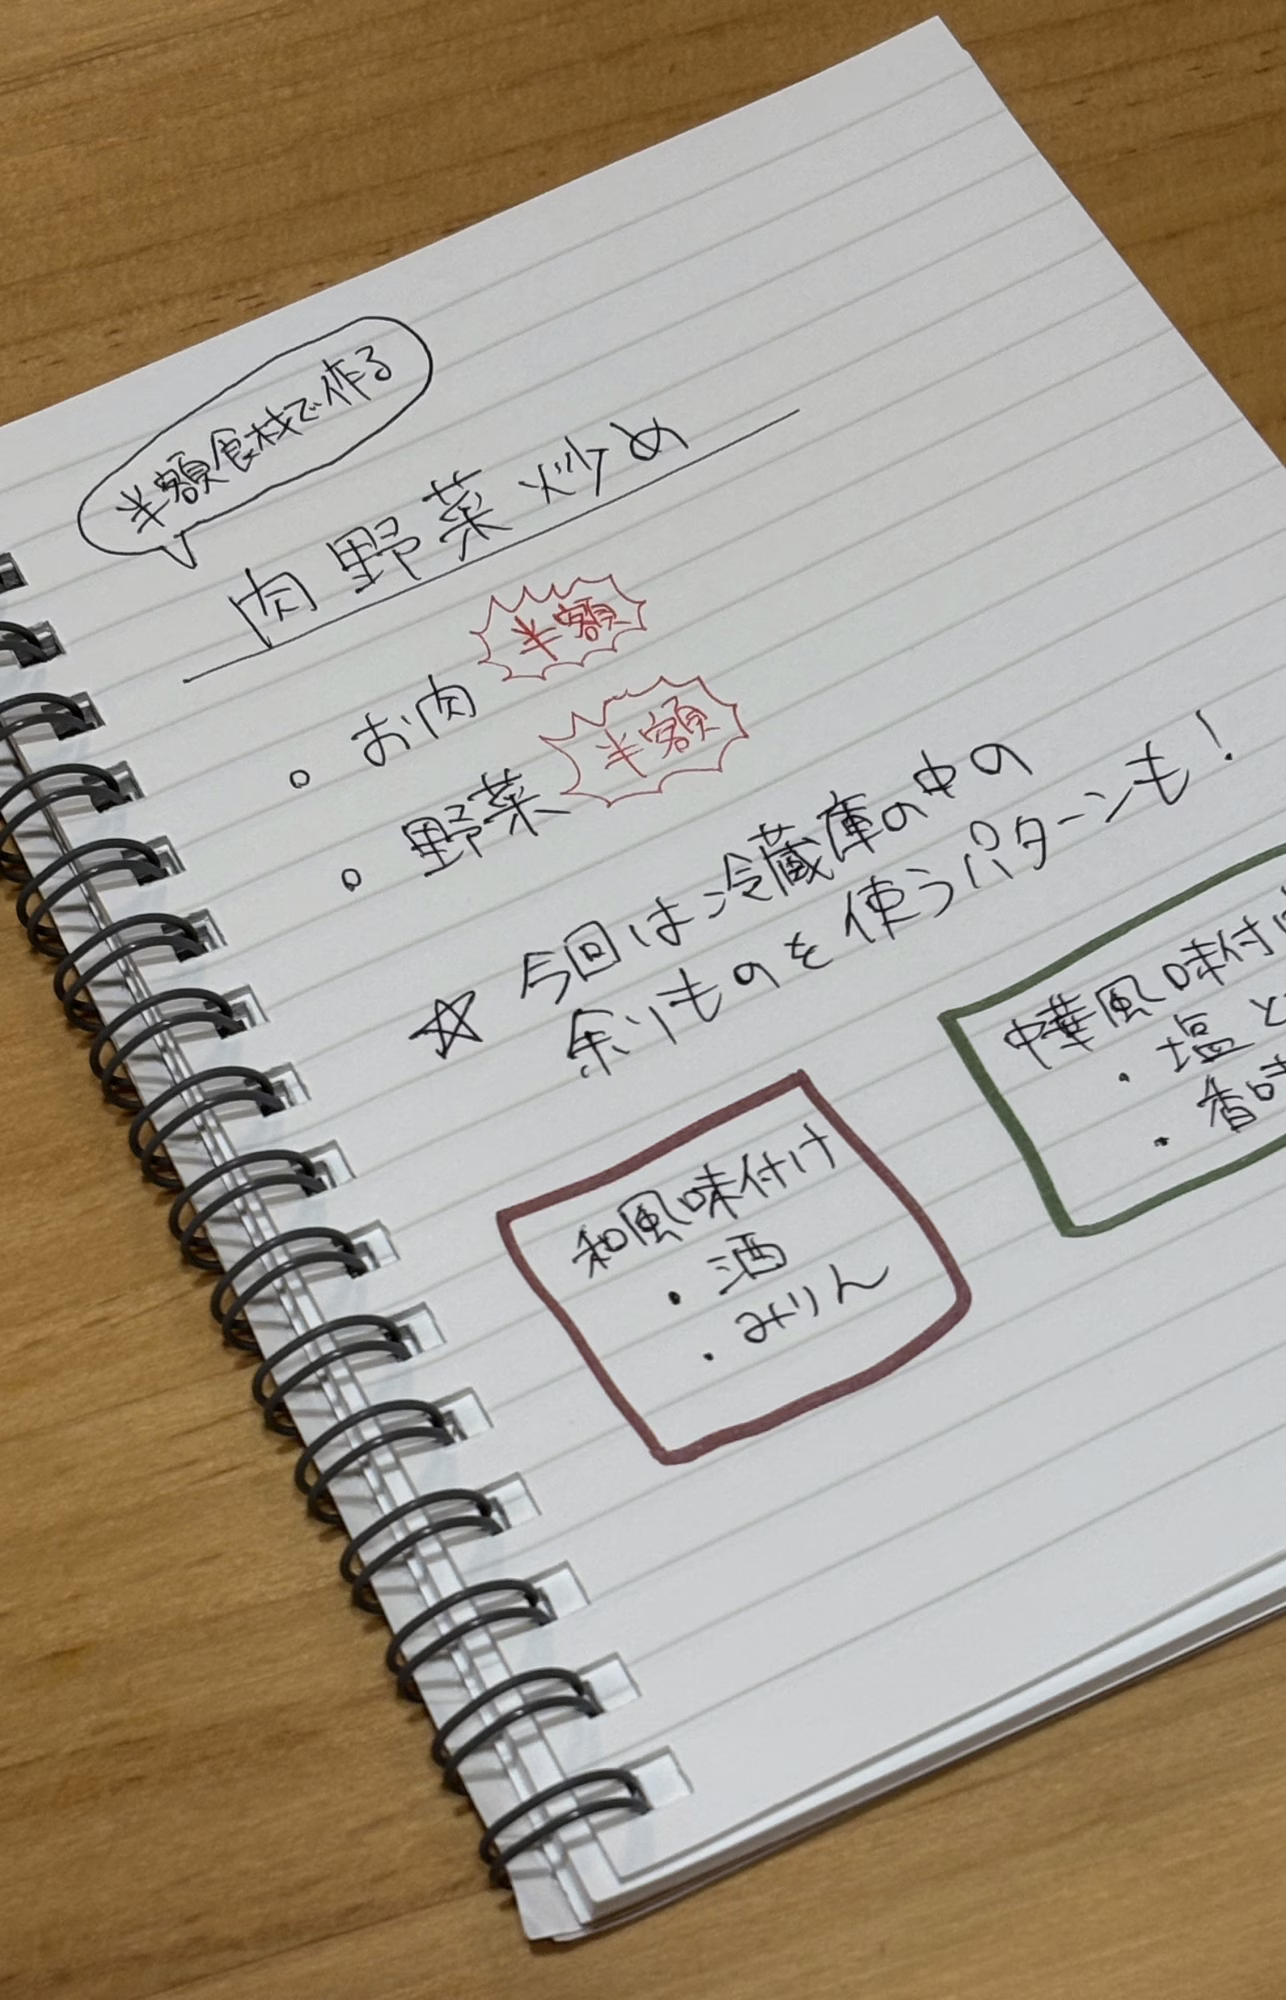 半額食材で作る
肉野菜炒め
。お肉 半額
。野菜 半額
☆ 今回は冷蔵庫の中の
余りものを使うパターンも！
和風味付け
・酒
・みりん
中華風味付け
・塩と
・香味